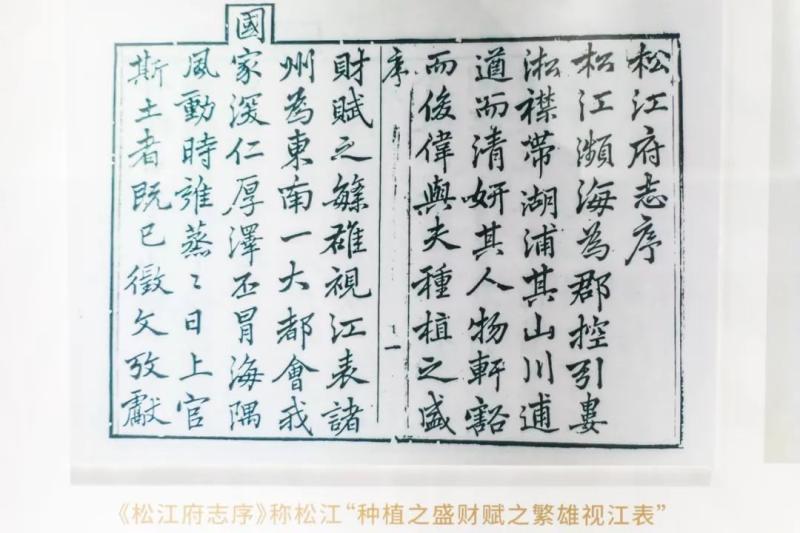 松江府志序
松江瀕海為郡控引婁
淞襟帶湖浦其山川逋
遒而清妍其人物軒豁
而俊偉與夫種植之盛
序 一
財賦之緐雄視江表諸
州為東南一大都會我
國家深仁厚澤丕冒海隅
風動時雍蒸〻日上官
斯土者既已徵文攷獻
《松江府志序》称松江“种植之盛财赋之繁雄视江表”